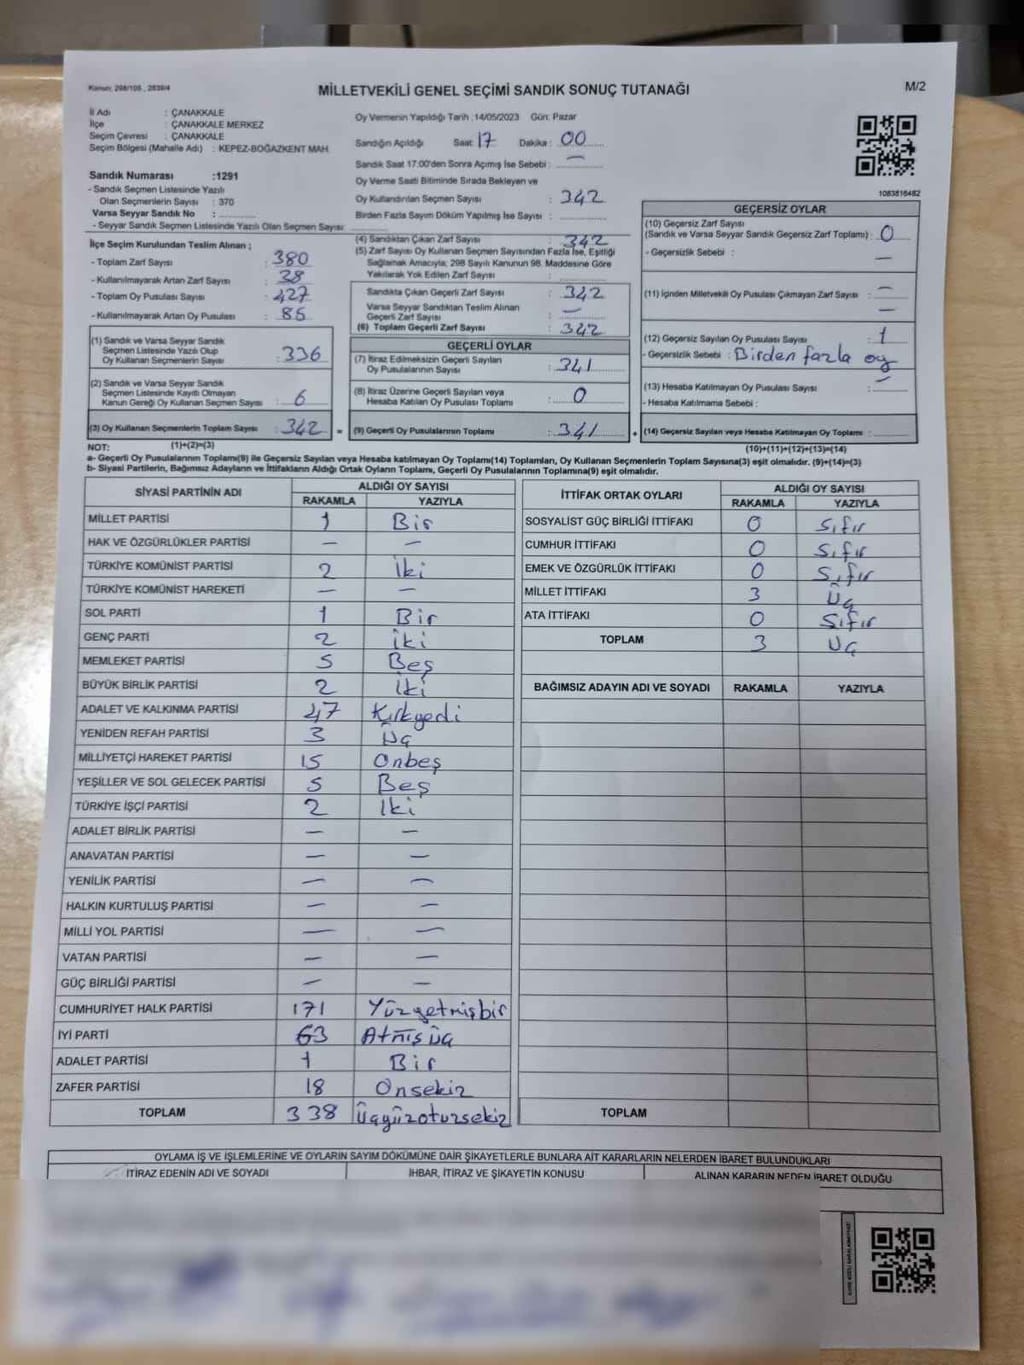 Kanun, 298/105 , 2839/4
MİLLETVEKİLİ GENEL SEÇİMİ SANDIK SONUÇ TUTANAĞI
M/2
İl Adı : ÇANAKKALE
İlçe : ÇANAKKALE MERKEZ
Seçim Çevresi : ÇANAKKALE
Seçim Bölgesi (Mahalle Adı) : KEPEZ-BOĞAZKENT MAH.
Sandık Numarası :1291
- Sandık Seçmen Listesinde Yazılı
Olan Seçmenlerin Sayısı : 370
Varsa Seyyar Sandık No :
- Seyyar Sandık Seçmen Listesinde Yazılı Olan Seçmen Sayısı:
Oy Vermenin Yapıldığı Tarih :14/05/2023 Gün: Pazar
Sandığın Açıldığı Saat: 17 Dakika : 00
Sandık Saat 17:00'den Sonra Açmış İse Sebebi : —
Oy Verme Saati Bitiminde Sırada Bekleyen ve
Oy Kullandırılan Seçmen Sayısı : 342
Birden Fazla Sayım Döküm Yapılmış İse Sayısı :
1083816482
İlçe Seçim Kurulundan Teslim Alınan ;
- Toplam Zarf Sayısı : 380
- Kullanılmayarak Artan Zarf Sayısı : 38
- Toplam Oy Pusulası Sayısı : 427
- Kullanılmayarak Artan Oy Pusulası : 85
(1) Sandık ve Varsa Seyyar Sandık
Seçmen Listesinde Yazılı Olup
Oy Kullanan Seçmenlerin Sayısı : 336
(2) Sandık ve Varsa Seyyar Sandık
Seçmen Listesinde Kayıtlı Olmayan
Kanun Gereği Oy Kullanan Seçmen Sayısı : 6
(3) Oy Kullanan Seçmenlerin Toplam Sayısı : 342 =
(4) Sandıktan Çıkan Zarf Sayısı : 342
(5) Zarf Sayısı Oy Kullanan Seçmen Sayısından Fazla İse, Eşitliği
Sağlamak Amacıyla; 298 Sayılı Kanunun 98. Maddesine Göre
Yakılarak Yok Edilen Zarf Sayısı :
Sandıkta Çıkan Geçerli Zarf Sayısı : 342
Varsa Seyyar Sandıktan Teslim Alınan
Geçerli Zarf Sayısı : —
(6) Toplam Geçerli Zarf Sayısı : 342
GEÇERLİ OYLAR
(7) İtiraz Edilmeksizin Geçerli Sayılan
Oy Pusulalarının Sayısı : 341
(8) İtiraz Üzerine Geçerli Sayılan veya
Hesaba Katılan Oy Pusulası Toplamı : 0
(9) Geçerli Oy Pusulalarının Toplamı : 341 +
GEÇERSİZ OYLAR
(10) Geçersiz Zarf Sayısı
(Sandık ve Varsa Seyyar Sandık Geçersiz Zarf Toplamı) : 0
- Geçersizlik Sebebi : —
(11) İçinden Milletvekili Oy Pusulası Çıkmayan Zarf Sayısı : —
(12) Geçersiz Sayılan Oy Pusulası Sayısı : 1
- Geçersizlik Sebebi : Birden fazla oy
(13) Hesaba Katılmayan Oy Pusulası Sayısı : —
- Hesaba Katılmama Sebebi :
(14) Geçersiz Sayılan veya Hesaba Katılmayan Oy Toplamı :
NOT: (1)+(2)=(3) (10)+(11)+(12)+(13)=(14)
a- Geçerli Oy Pusulalarının Toplamı(9) ile Geçersiz Sayılan veya Hesaba katılmayan Oy Toplamı(14) Toplamları, Oy Kullanan Seçmenlerin Toplam Sayısına(3) eşit olmalıdır. (9)+(14)=(3)
b- Siyasi Partilerin, Bağımsız Adayların ve İttifakların Aldığı Ortak Oyların Toplamı, Geçerli Oy Pusulalarının Toplamına(9) eşit olmalıdır.
SİYASİ PARTİNİN ADI ALDIĞI OY SAYISI
RAKAMLA YAZIYLA
MİLLET PARTİSİ 1 Bir
HAK VE ÖZGÜRLÜKLER PARTİSİ — —
TÜRKİYE KOMÜNİST PARTİSİ 2 İki
TÜRKİYE KOMÜNİST HAREKETİ — —
SOL PARTİ 1 Bir
GENÇ PARTİ 2 iki
MEMLEKET PARTİSİ 5 Beş
BÜYÜK BİRLİK PARTİSİ 2 İki
ADALET VE KALKINMA PARTİSİ 47 Kırkyedi
YENİDEN REFAH PARTİSİ 3 Üç
MİLLİYETÇİ HAREKET PARTİSİ 15 Onbeş
YEŞİLLER VE SOL GELECEK PARTİSİ 5 Beş
TÜRKİYE İŞÇİ PARTİSİ 2 İki
ADALET BİRLİK PARTİSİ — —
ANAVATAN PARTİSİ — —
YENİLİK PARTİSİ — —
HALKIN KURTULUŞ PARTİSİ — —
MİLLİ YOL PARTİSİ — —
VATAN PARTİSİ — —
GÜÇ BİRLİĞİ PARTİSİ — —
CUMHURİYET HALK PARTİSİ 171 Yüzyetmişbir
İYİ PARTİ 63 Atmış üç
ADALET PARTİSİ 1 Bir
ZAFER PARTİSİ 18 Onsekiz
TOPLAM 338 Üçyüzotuzsekiz
İTTİFAK ORTAK OYLARI ALDIĞI OY SAYISI
RAKAMLA YAZIYLA
SOSYALİST GÜÇ BİRLİĞİ İTTİFAKI 0 Sıfır
CUMHUR İTTİFAKI 0 Sıfır
EMEK VE ÖZGÜRLÜK İTTİFAKI 0 Sıfır
MİLLET İTTİFAKI 3 Üç
ATA İTTİFAKI 0 Sıfır
TOPLAM 3 Üç
BAĞIMSIZ ADAYIN ADI VE SOYADI RAKAMLA YAZIYLA
TOPLAM
OYLAMA İŞ VE İŞLEMLERİNE VE OYLARIN SAYIM DÖKÜMÜNE DAİR ŞİKAYETLERLE BUNLARA AİT KARARLARIN NELERDEN İBARET BULUNDUKLARI
İTİRAZ EDENİN ADI VE SOYADI İHBAR, İTİRAZ VE ŞİKAYETİN KONUSU ALINAN KARARIN NEDEN İBARET OLDUĞU